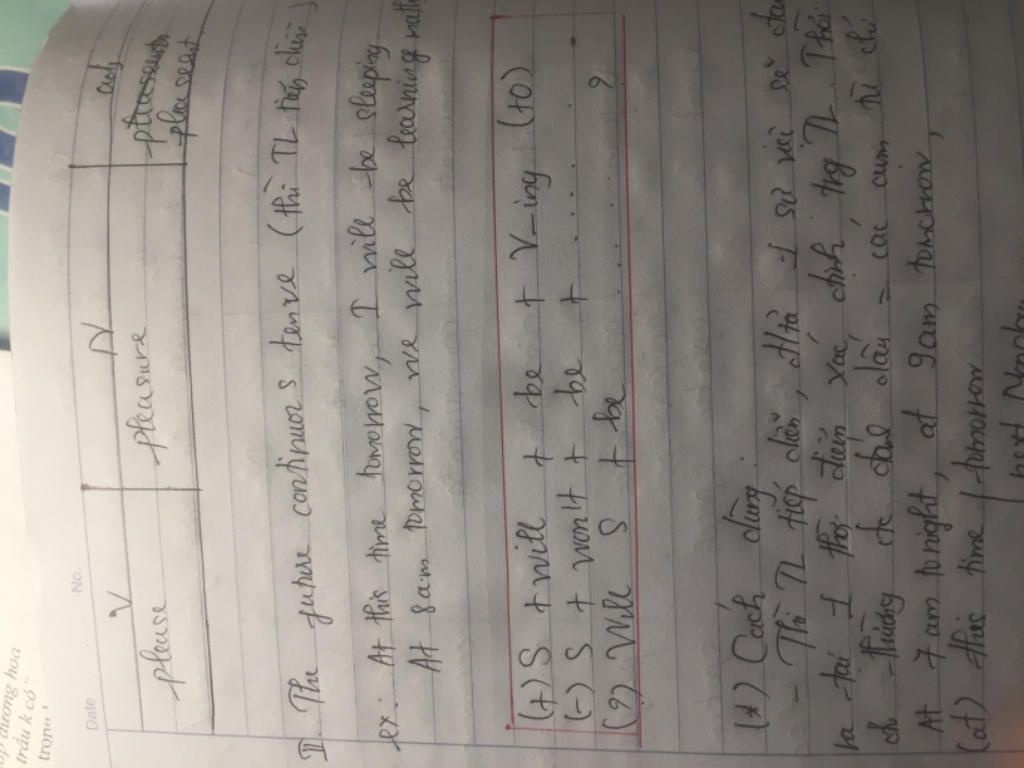 ập đương hoa
trâu k có"
trọng '
Date No.
V N adj
please pleasure pleasant
II. The future continuos tense (thì TL tiếp diễn)
ex: At this time tomorrow, I will be sleeping
At 8am tomorrow, we will be learning
(+) S + will + be + V-ing (+O)
(-) S + won't + be + ........
(?) Will S + be ........ ?
(*) Cách dùng
- Thì TL tiếp diễn, diễn tả 1 sự việc sẽ
ra tại 1 xác định trg TL. Thời
đc dấu = các cụm từ chỉ
At 7am tonight, at 9am tomorrow,
(at) this time / tomorrow
next Monday